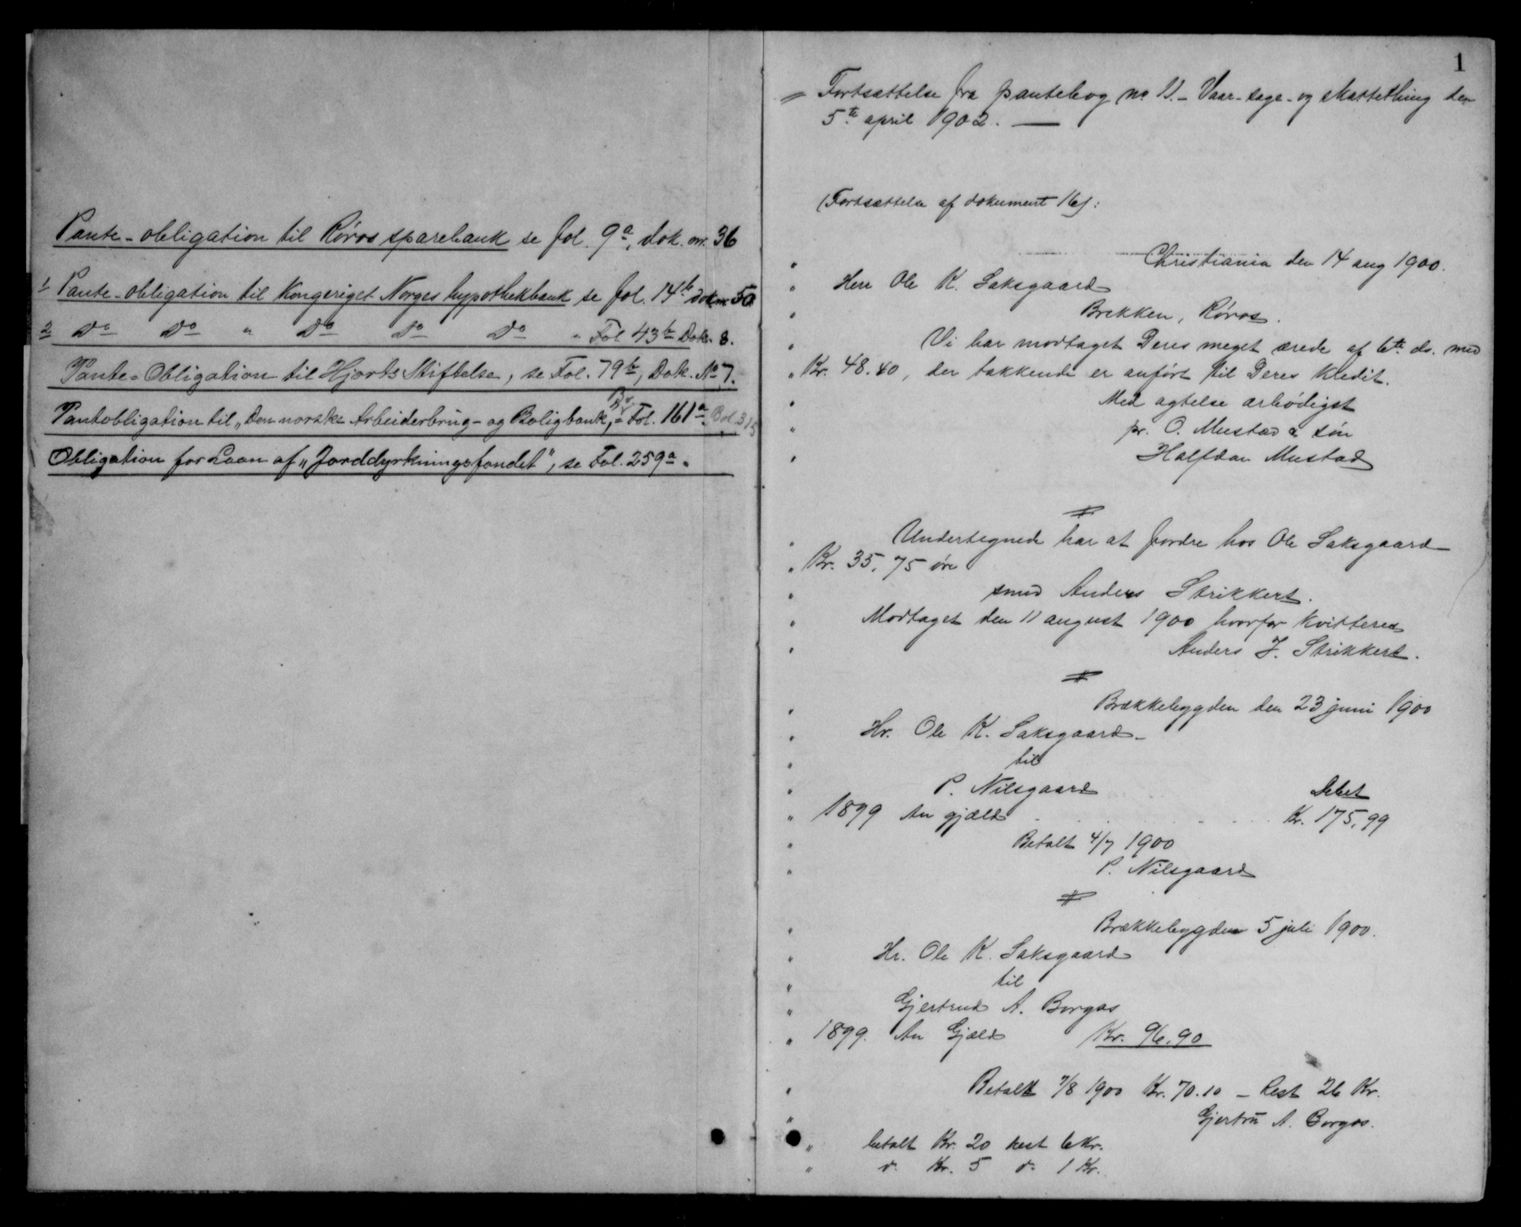 Pante-obligation til Røros sparebank se fol. 9a, dok. nr. 36
1 Pante-obligation til Kongeriget Norges hypothekbank se fol. 14b dok nr 50
2 Do Do " Do Do Do " Fol 43b Dok. 8.
Pante-Obligation til Hjorts Stiftelse, se Fol. 79b, Dok. No 7.
Pantobligation til "Den norske Arbeiderbrug- og Boligbank, Fol. 161a
Obligation for Laan af "Jorddyrkningsfondet", se Fol. 259a.
1
Fortsættelse fra pantebog no 11. - Vaar-sage- og skattething den
5te april 1902. —
(Fortsættelse af dokument 16):
Christiania den 14 aug 1900.
" Herr Ole K. Saksgaard
" Brekken, Røros.
" Vi har modtaget Deres meget ærede af 6te ds. med
" Kr. 48.40, der takkende er anført til Deres kredit.
" Med agtelse ærbødigst
" pr. O. Mustad & søn
" Halfdan Mustad
" Undertegnede har at fordre hos Ole Saksgaard
" Kr. 35,75 øre
" smed Anders Strikkert.
" Modtaget den 11 august 1900 hvorfor kvitteres
" Anders J. Strikkert.
" Brækkebygden den 23 juni 1900
" Hr. Ole K. Saksgaard
" til
" P. Nilsgaard Debet
" 1899 An gjæld . . . . . . Kr. 175,99
" Betalt 4/7 1900
" P. Nilsgaard
" Brækkebygden 5 juli 1900.
" Hr. Ole K. Saksgaard
" til
" Gjertrud A. Borgos
" 1899. An Gjæld Kr. 96,90
" Betalt 7/8 1900 Kr. 70.10 - Rest 26 Kr.
" Gjertru A. Borgos.
" betalt Kr. 20 rest 6 Kr.
" do Kr. 5 do 1 Kr.